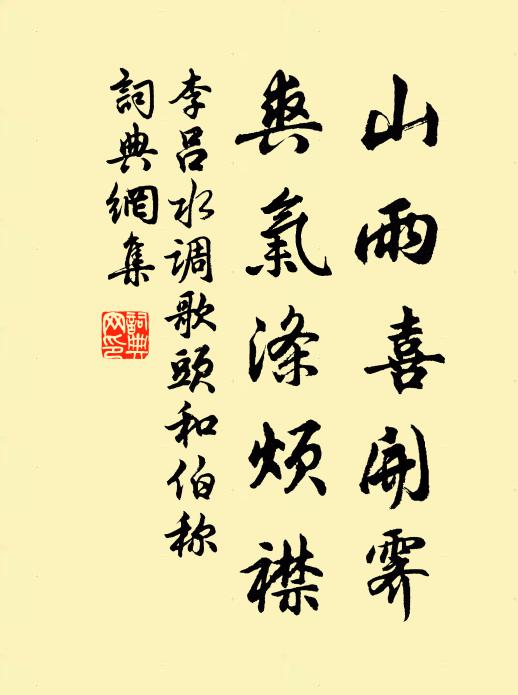 山雨喜開霽
爽氣滌煩襟
李呂水调歌頭和伯称
詞典網集
詞典
网印